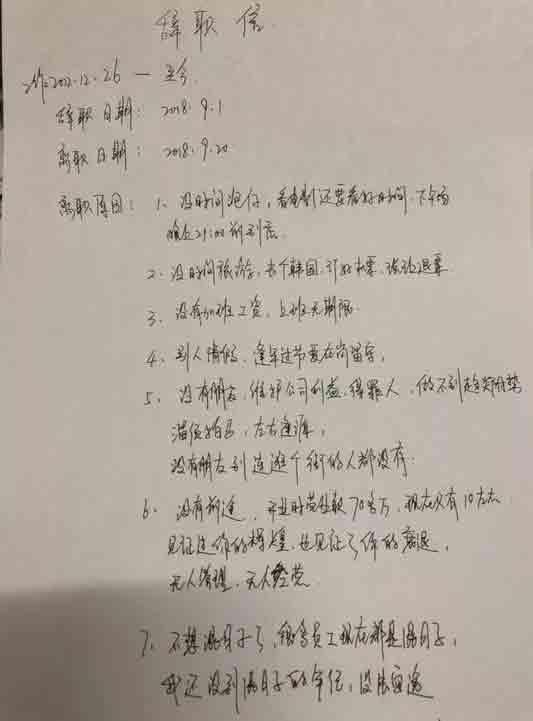 辞职信
工作:2012.12.26 — 至今.
辞职日期: 2018.9.1
离职日期: 2018.9.20
离职原因: 1、没时间泡仔,看电影还要看好时间,下午场
晚上21:00前到店.
2、没时间旅游,去个韩国,订好机票,说让退票
3、没有加班工资,上班无期限.
4、别人情侣,逢年过节要在岗留守,
5、没有朋友,维护公司利益,得罪人,做不到趋炎附势
溜须拍马,左右逢源,
没有朋友到连逛个街的人都没有.
6、没有前途,开业时营业额70多万,现在只有10左右
见证过你的辉煌,也见证了你的衰退,
无人管理,无人经营
7、不想混日子了,很多员工现在都是混日子,
我还没到混日子的年纪,没法